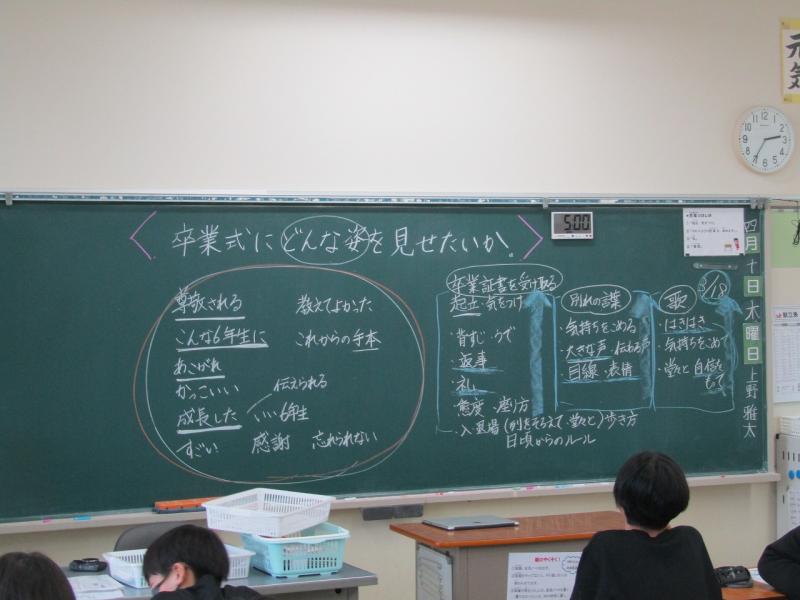 卒業式にどんな姿を見せたいか。
尊敬される
教えてよかった
こんな6年生に
これからの手本
あこがれ
かっこいい
伝えられる
成長した
いい6年生
すごい
感謝
忘れられない
卒業証書を受け取る
起立・気をつけ
・背すじ・うで
・返事
・礼
・態度・座り方
・入退場(列をそろえて・堂々と)歩き方
日頃からのルール
別れの言葉
・気持ちをこめる
・大きな声・伝わる声
・目線・表情
歌
・はきはき
・気持ちをこめて
・堂々と自信をもって
3/18
四月十日木曜日
上野雅太
5:00
元気
12 1 2 3 4 5 6 7 8 9 10 11